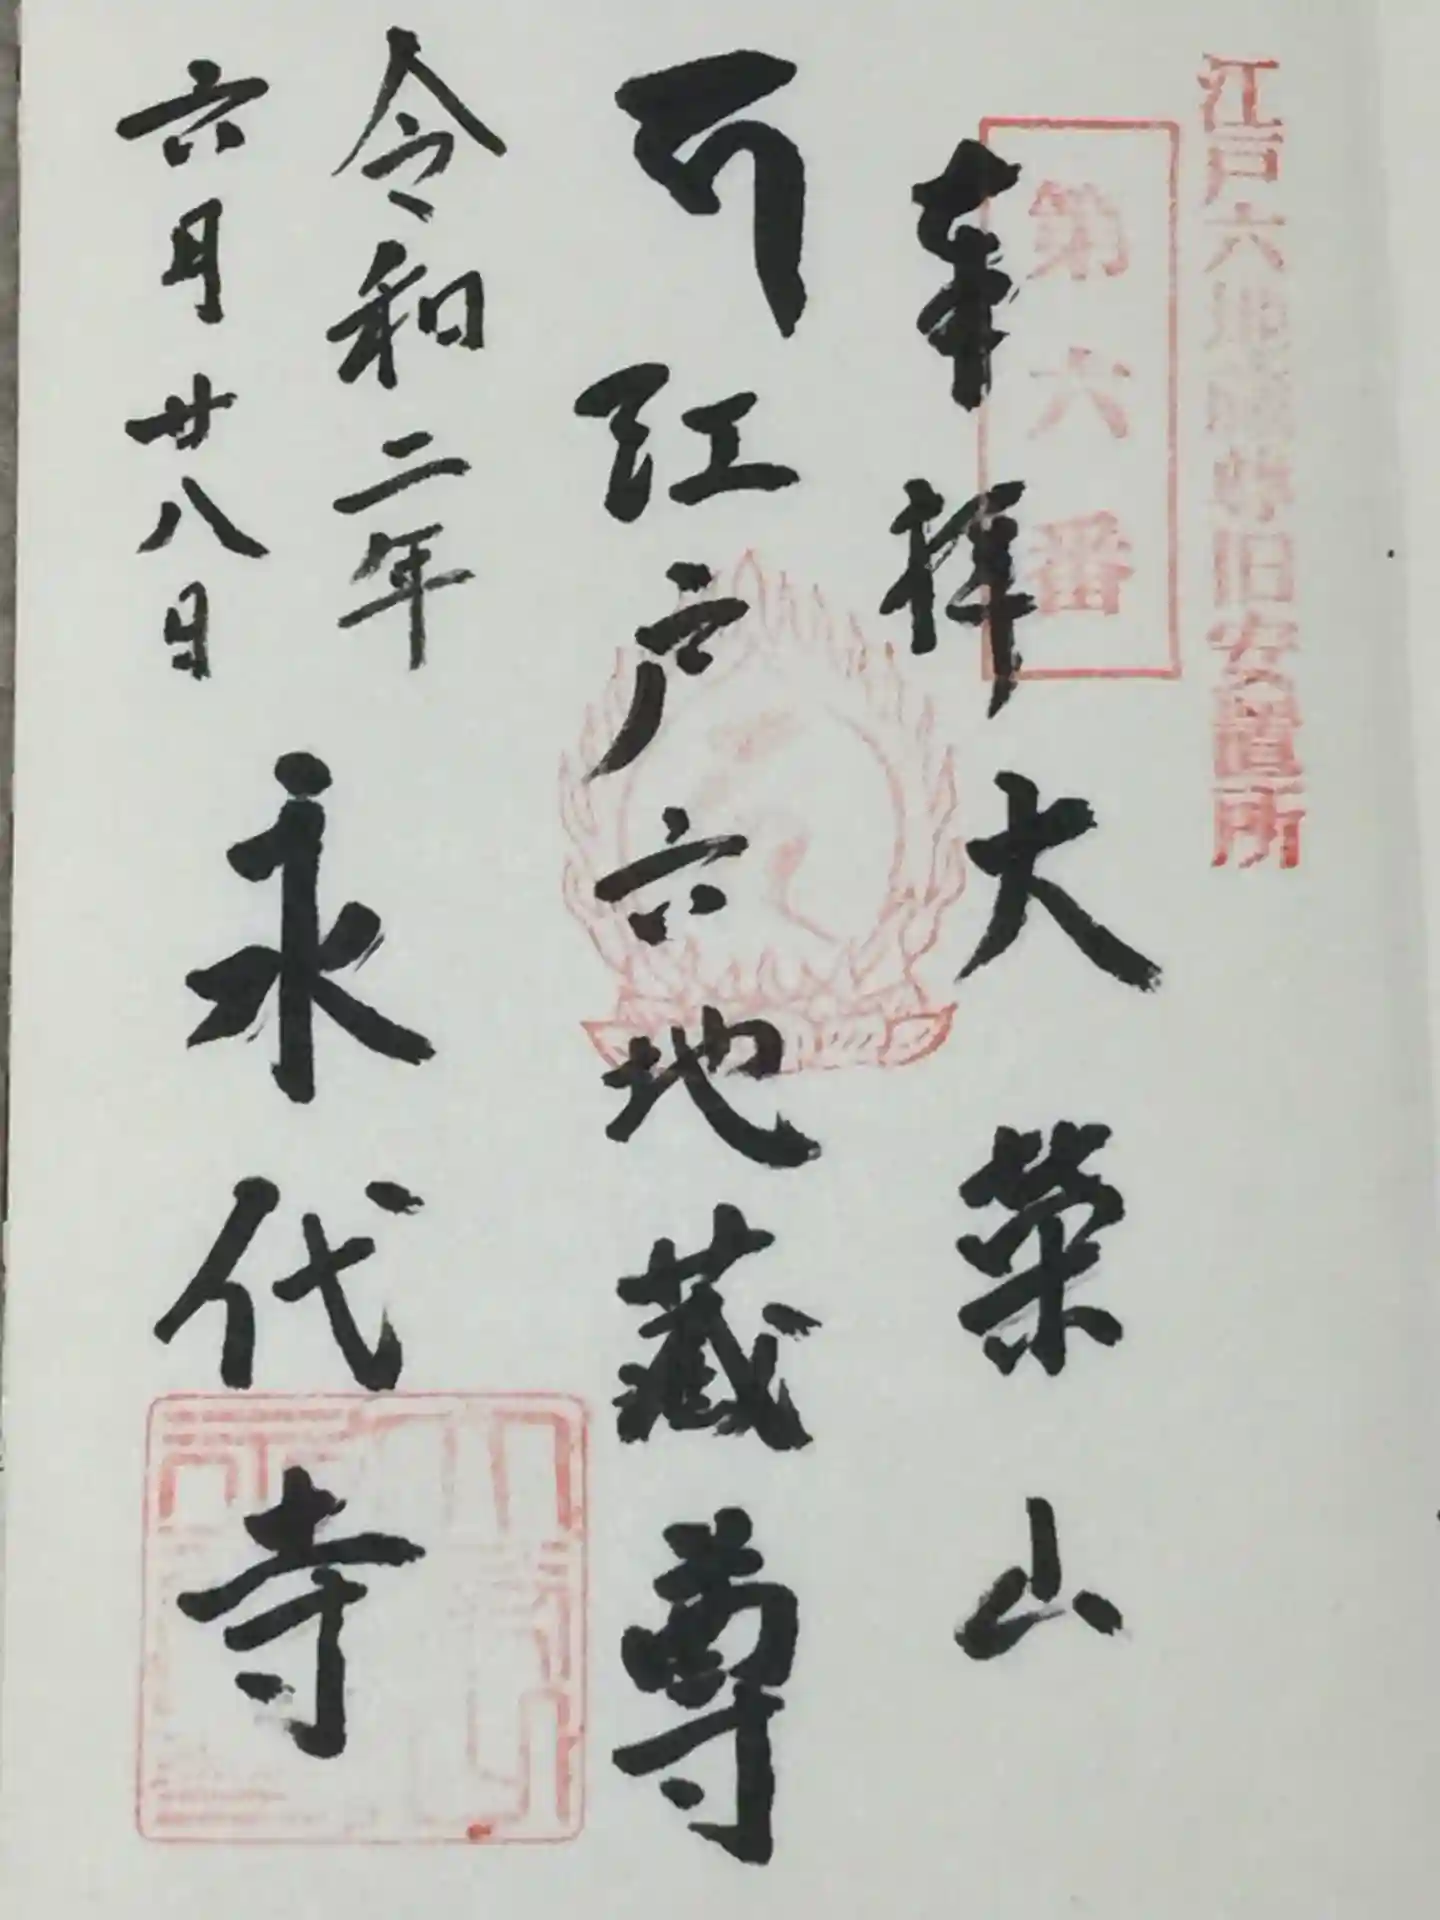 江戸六地蔵尊旧安置所
第六番
奉拝 大栄山
江戸六地蔵尊
令和二年
六月廿八日
永代寺